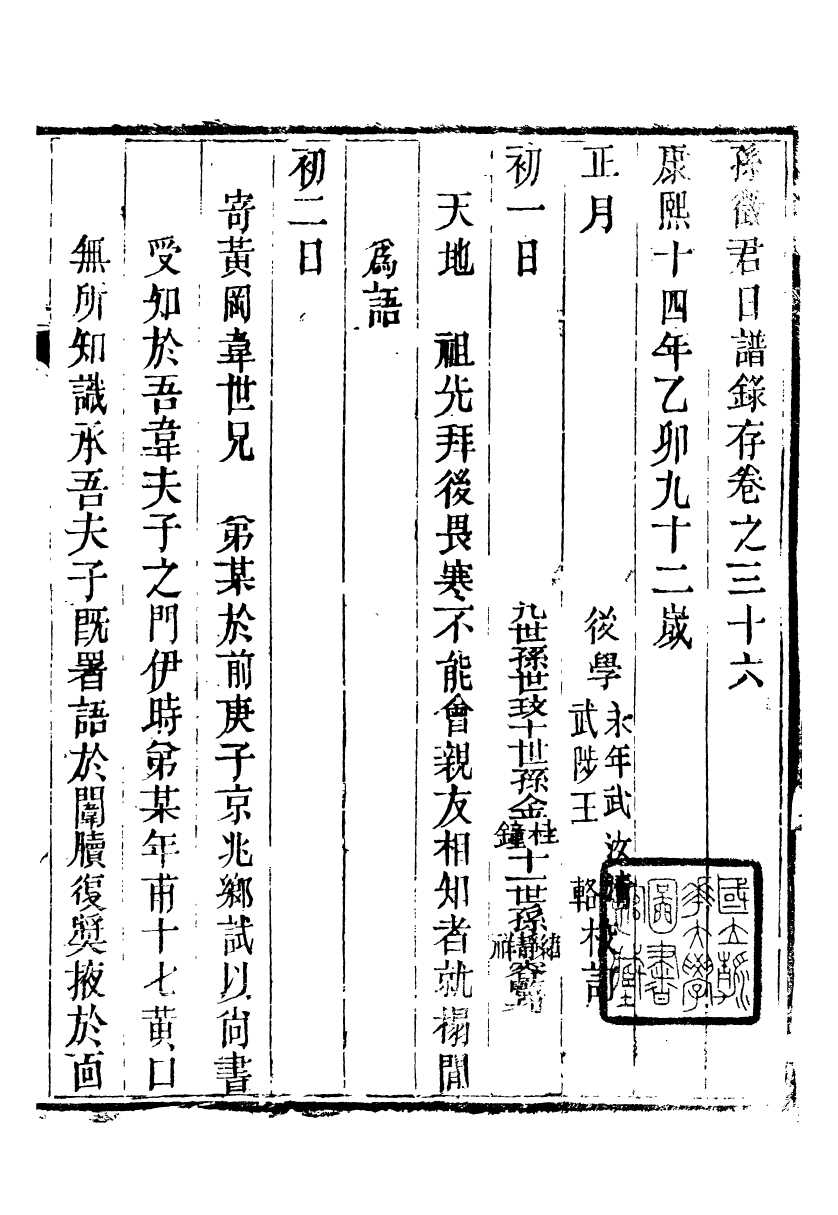 孫徵君日譜錄存卷之三十六
康熙十四年乙卯九十二歲
正月
後學
永年武汝清
武陟王輅校訂
初一日
九世孫世玟十世孫金桂鐘十一世孫
天地　祖先拜後畏寒不能會親友相知者就榻閒
爲語
初二日
寄黃岡韋世兄　弟某於前庚子京兆鄉試以尙書
受知於吾韋夫子之門伊時弟某年甫十七黃口
無所知識承吾夫子既署語於闈牘復奬掖於面
國立北平大學圖書館